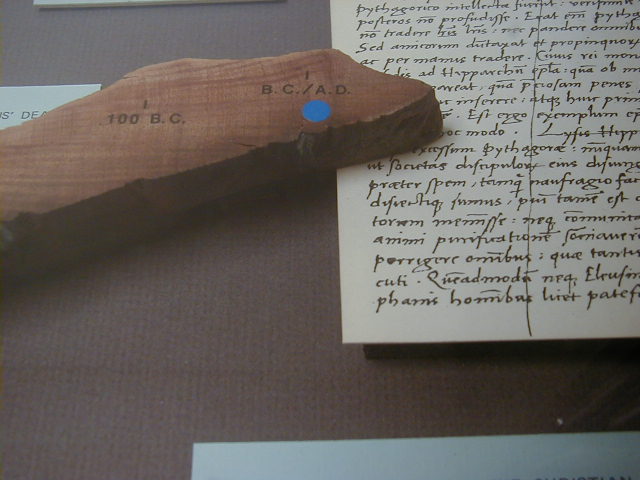 US' DEA
100 B.C.
B.C./A.D.
pythagorico intellecta fuerūt. verissim
posteros nō prodidisse. Erat em̄ pytha
nō tradere nec pandere omnibu
Sed amicorum dūtaxat et propinquor
ac per manus tradere. Cuius rei mon
dis ad Hipparchū ep̄la; qua ob
areat, quā p̄ciosam penes
inserere: atq; huic prim
. Est ergo exemplum ep
oc modo. Lysis Hipp
excessum pythagoræ: nunquam
ut societas discipulor eius disiun
præter spem, tamq̄ naufragio fac
disiectiq; sumus, piū tamē est d
torum meminisse: neq; cōmunita
animi purificationē somniauer
porrigere omnibus: quæ tanti
cuti. Quēadmodū neq; Eleusin
phanis hominibus licet patef
CHRISTIAN